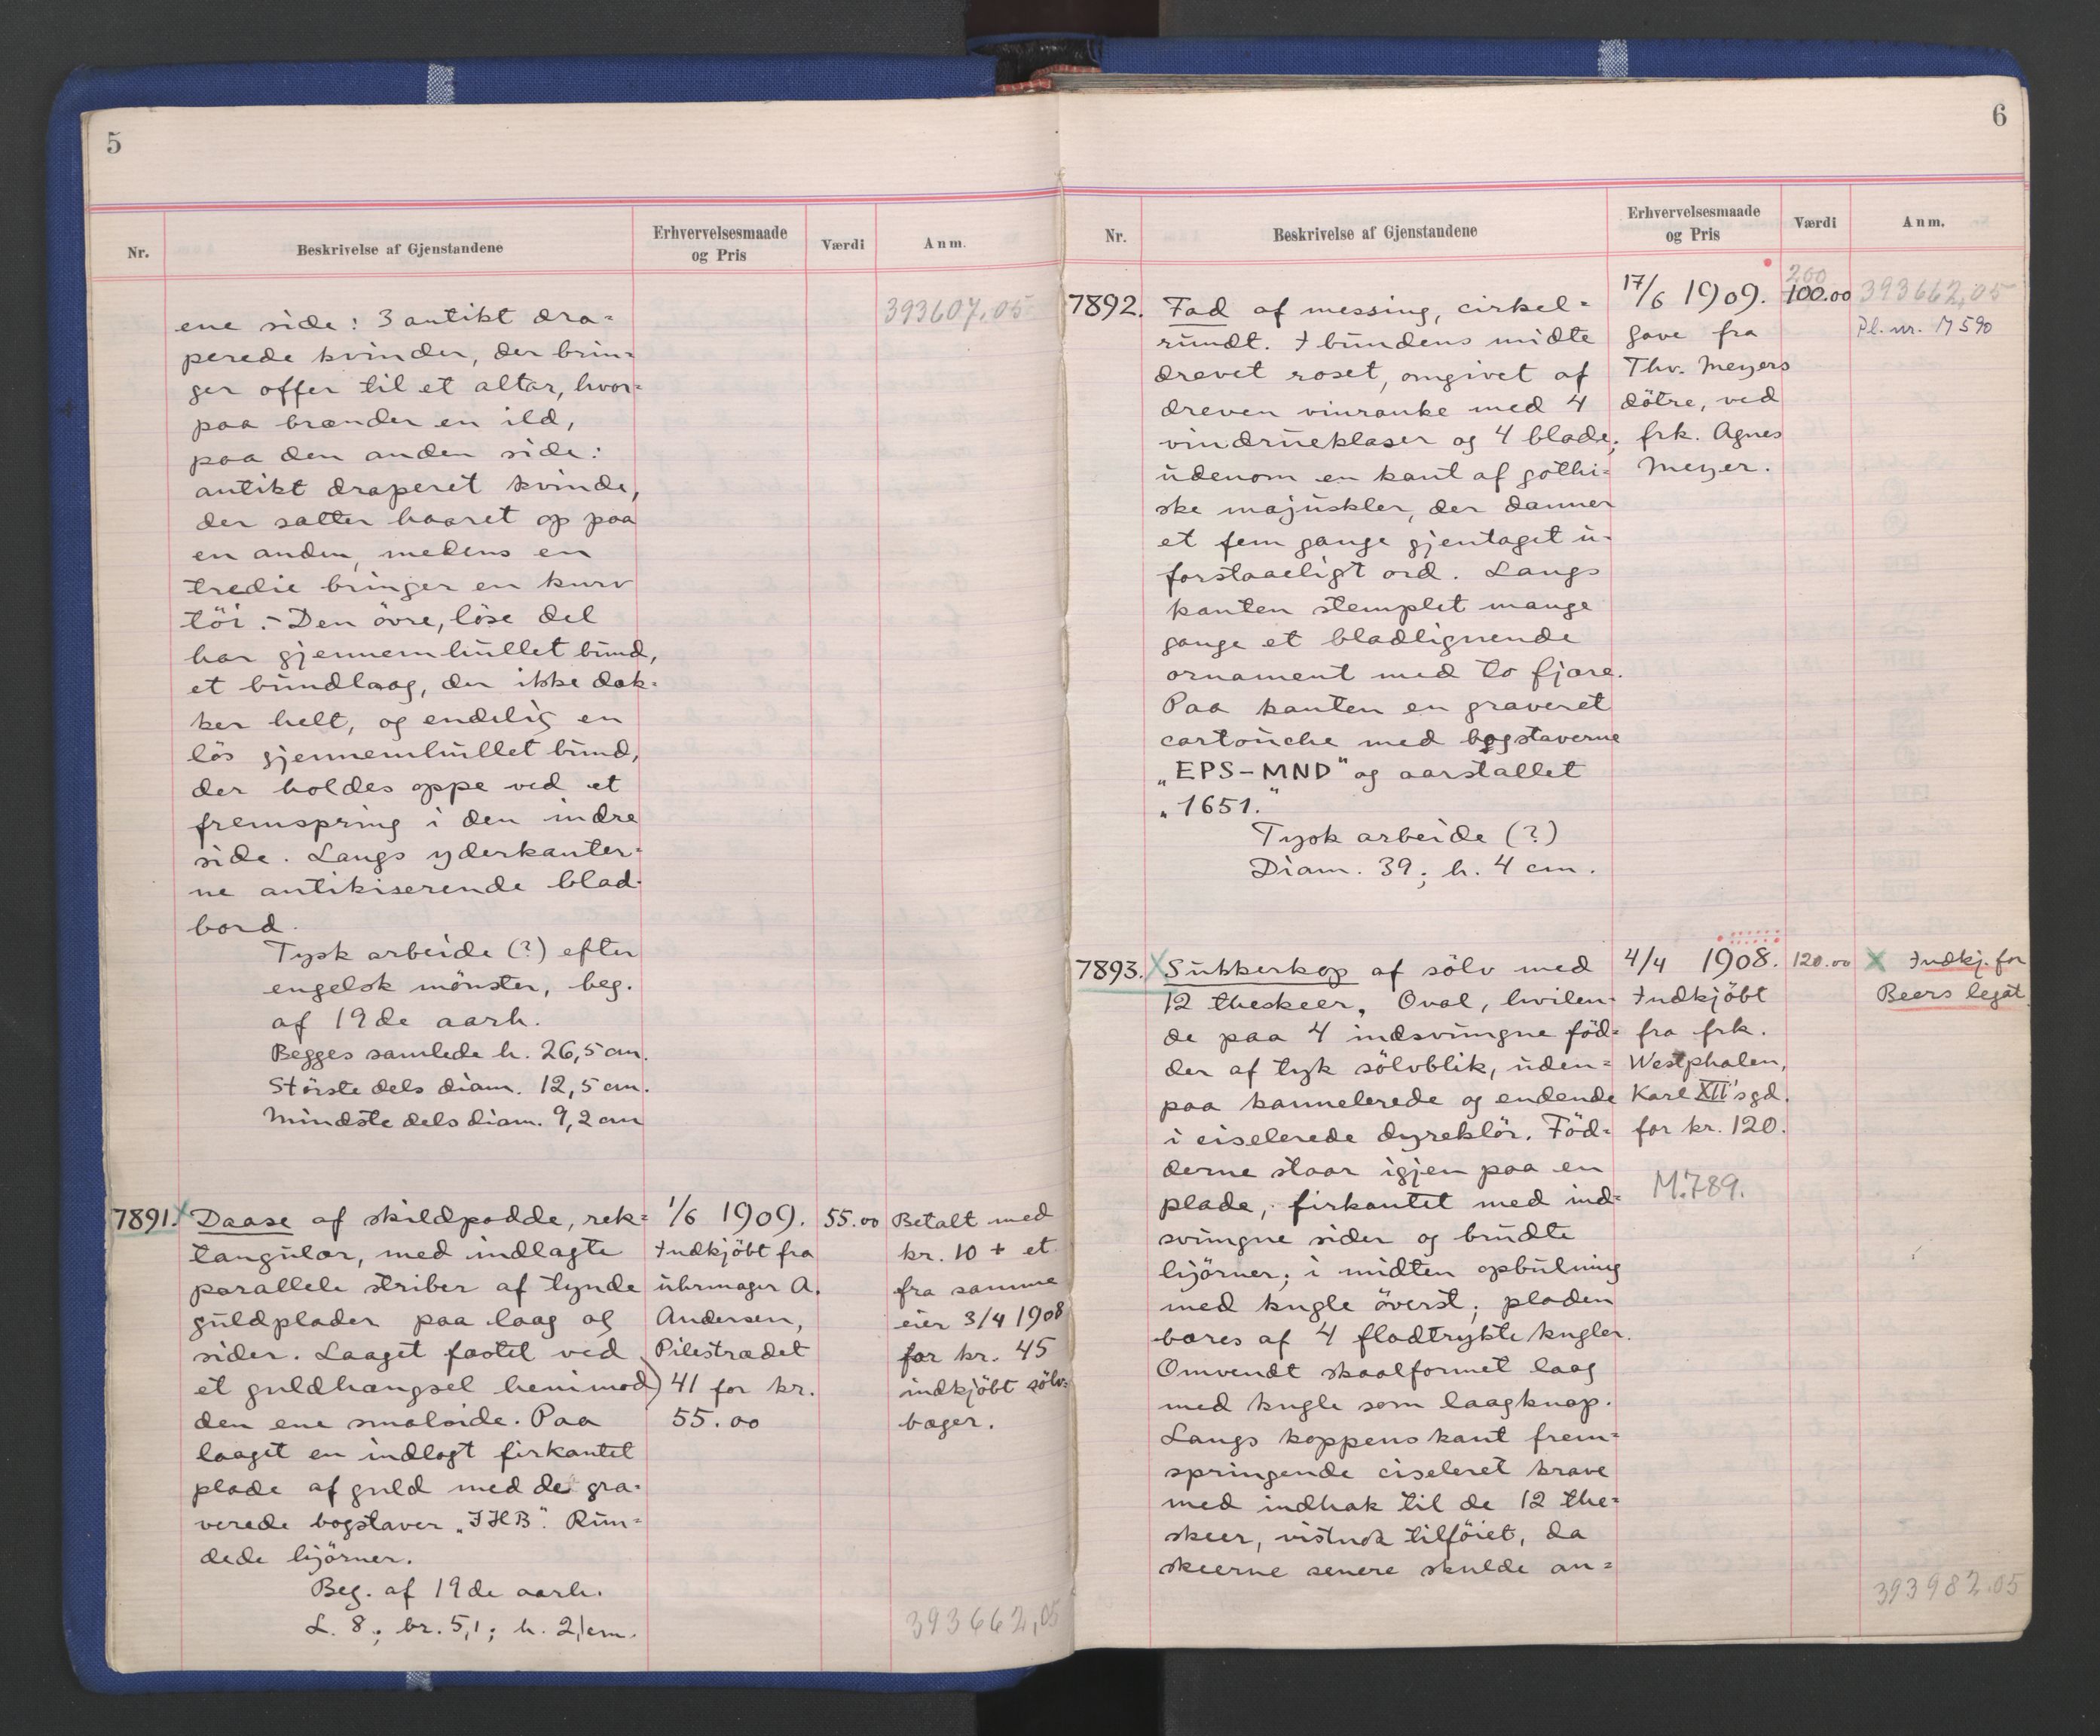 5
Nr.
Beskrivelse af Gjenstandene
Erhvervelsesmaade
og Pris
Værdi
Anm.
393607.05
ene side: 3 antikt dra=
perede kvinder, der brin=
ger offer til et altar, hvor=
paa brænder en ild,
paa den anden side:
antikt draperet kvinde,
der sætter haaret op paa
en anden, medens en
tredie bringer en kurv
töi. - Den övre, löse del
har gjennemhullet bund,
et bundlaag, der ikke dæk=
ker helt, og endelig en
lös gjennemhullet bund,
der holdes oppe ved et
fremspring i den indre
side. Langs yderkanter=
ne antikiserende blad=
bord.
Tysk arbeide (?) efter
engelsk mönster, beg.
af 19de aarh.
Begges samlede h. 26,5 cm.
Störste dels diam. 12,5 cm.
Mindste dels diam. 9,2 cm
7891. x
Daase af skildpadde, rek=
tangulær, med indlagte
parallele striber af tynde
guldplader paa laag og
sider. Laaget fæstet ved
et guldhængsel henimod
den ene smalside. Paa
laaget en indlagt firkantet
plade af guld med de gra=
verede bogstaver „JHB". Run=
dede hjörner.
Beg. af 19de aarh.
L. 8; br. 5,1; h. 2,1 cm.
1/6 1909.
Indkjöbt fra
uhrmager A.
Andersen,
Pilestrædet
41 for kr.
55.00
55.00
Betalt med
kr. 10 + et
fra samme
eier 3/4 1908
for kr. 45
indkjöbt sölv=
bæger.
393662,05
6
Nr.
Beskrivelse af Gjenstandene
Erhvervelsesmaade
og Pris
Værdi
Anm.
7892.
Fad af messing, cirkel=
rundt. I bundens midte
drevet roset, omgivet af
dreven vinranke med 4
vindrueklaser og 4 blade;
udenom en kant af gothi=
ske majuskler, der danner
et fem gange gjentaget u=
forstaaeligt ord. Langs
kanten stemplet mange
gange et bladlignende
ornament med to fjære.
Paa kanten en graveret
cartouche med bogstaverne
„EPS-MND" og aarstallet
„1651."
Tysk arbeide (?)
Diam. 39; h. 4 cm.
17/6 1909.
Gave fra
Thv. Meyers
dötre, ved
frk. Agnes
Meyer.
200
100.00
393662,05
Pl. nr. M 590
7893. x
Sukkerkop af sölv med
12 theskeer. Oval, hvilen=
de paa 4 indsvungne föd=
der af tyk sölvblik, uden=
paa kannelerede og endende
i ciselerede dyreklör. Föd=
derne staar igjen paa en
plade, firkantet med ind=
svungne sider og brudte
hjörner; i midten opbulning
med kugle överst; pladen
bæres af 4 fladtrykte kugler.
Omvendt skaalformet laag
med kugle som laagknap.
Langs koppens kant frem=
springende ciseleret krave
med indhak til de 12 the=
skeer, vistnok tilföiet, da
skeerne senere skulde an=
4/4 1908.
Indkjöbt
fra frk.
Westphalen,
Karl XII's gd.
for kr. 120.
M.789.
120.00
x Indkj. for
Beers legat.
393982.05